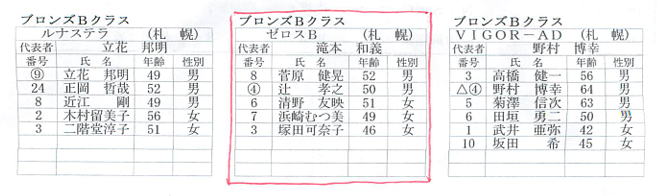 ブロンズBクラス
ルナステラ （札　幌）
代表者 立花　邦明
番号 氏　名 年齢 性別
⑨ 立花　邦明 49 男
24 正岡　哲哉 52 男
8 近江　　剛 49 男
2 木村留美子 56 女
3 二階堂淳子 51 女
ブロンズBクラス
ゼロスB （札　幌）
代表者 滝本　和義
番号 氏　名 年齢 性別
8 菅原　健晃 52 男
④ 辻　　孝之 50 男
6 清野　友映 51 女
7 浜崎むつ美 49 女
3 塚田可奈子 46 女
ブロンズBクラス
VIGOR－AD （札　幌）
代表者 野村　博幸
番号 氏　名 年齢 性別
3 高橋　健一 56 男
△④ 野村　博幸 64 男
5 菊澤　信次 63 男
6 田垣　勇二 50 男
1 武井　亜弥 42 女
10 坂田　　希 45 女